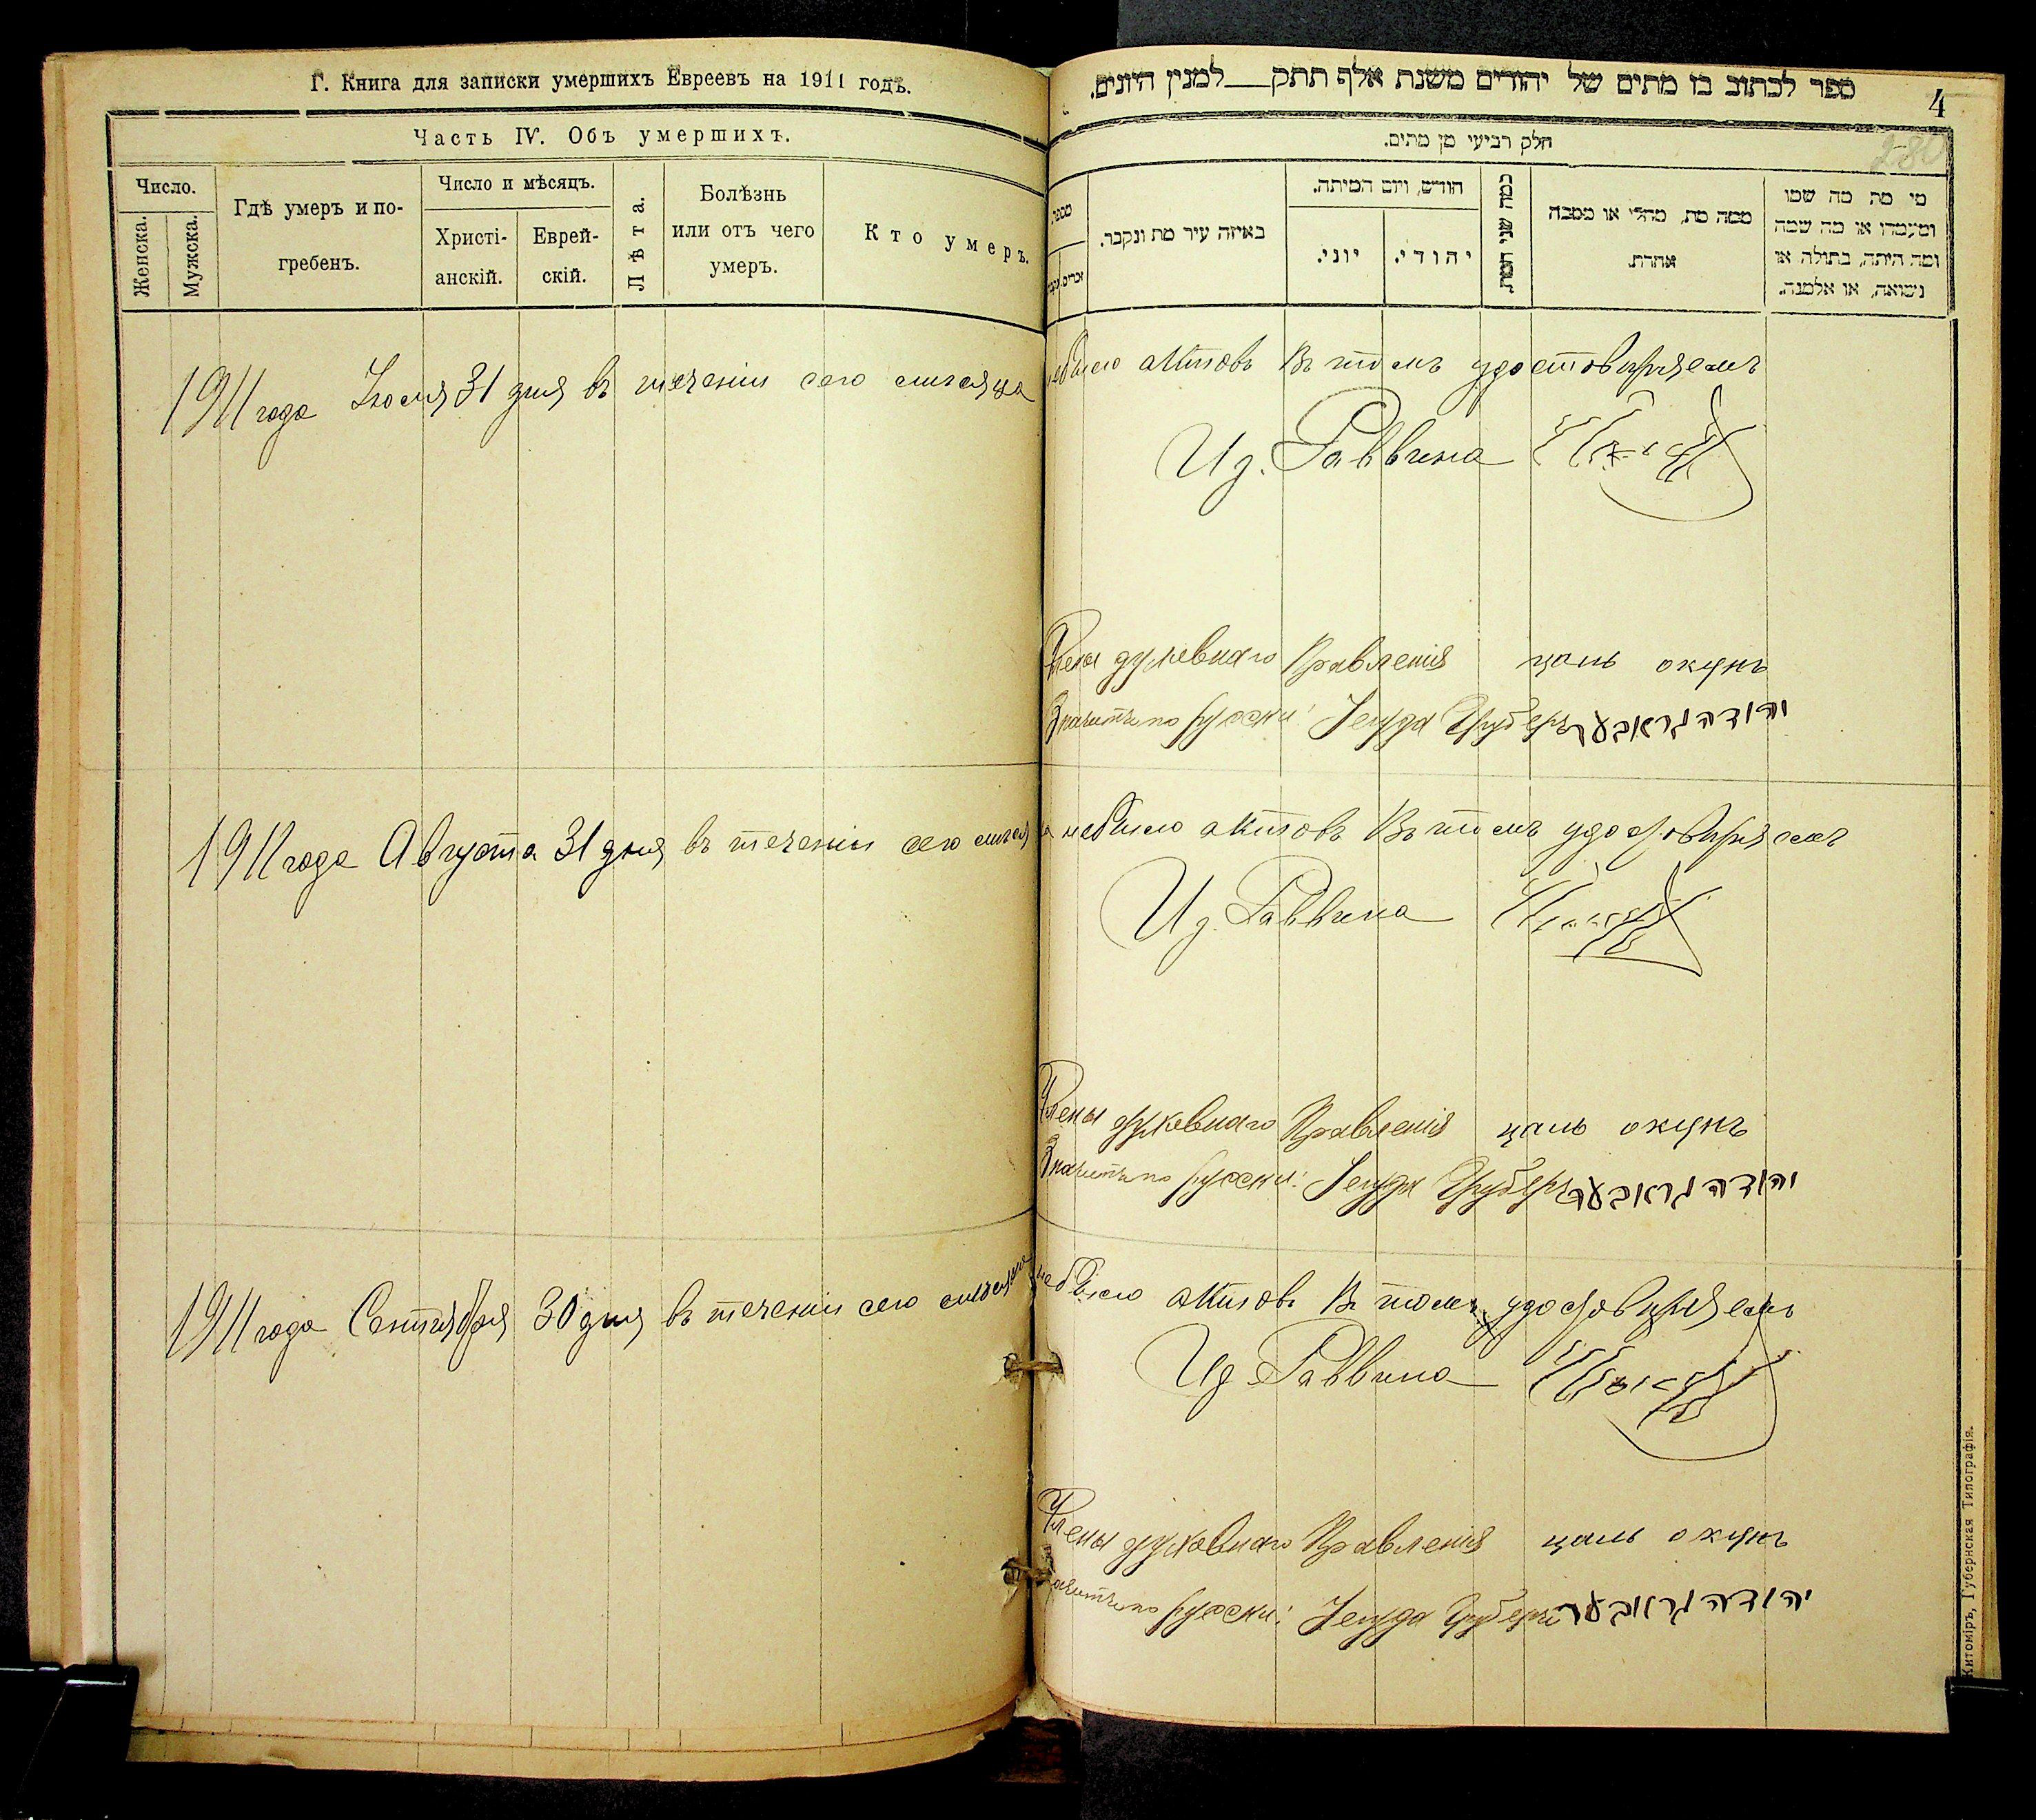 Г. Книга для записки умершихъ Евреевъ на 1911 годъ.
Часть IV. Объ умершихъ.
Число.
Женска.
Мужска.
Гдѣ умеръ и по-
гребенъ.
Число и мѣсяцъ.
Христі-
анскій.
Еврей-
скій.
Лѣта.
Болѣзнь
или отъ чего
умеръ.
Кто умеръ.
1911 года Іюля 31 дня въ теченіи сего мѣсяца
1911 года Августа 31 дня въ теченіи сего мѣсяца
1911 года Сентября 30 дня въ теченіи сего мѣсяца
ספר לכתוב בו מתים של יהודים משנת אלף תתק למנין היונים.
4
280
חלק רביעי מן מתים.
מספר.
באיזה עיר מת ונקבר.
חודש, ויום המיתה.
יוני.
יהודי.
כמה שני המת
ממה מת, מחלי או מסבה
אחרת.
מי מת מה שמו
ומעמדו או מה שמה
ומה היתה, בתולה או
נשואה, או אלמנה.
небыло актовъ въ томъ удостовѣряемъ
Ид. Раввина
Члены духовнаго Правленія цаль окунь
Значитъ по русски: Іегуда Груберъ יהודה גראבער
небыло актовъ въ томъ удостовѣряемъ
Ид. Раввина
Члены духовнаго Правленія цаль окунь
Значитъ по русски: Іегуда Груберъ יהודה גראבער
небыло актовъ въ томъ удостовѣряемъ
Ид. Раввина
Члены духовнаго Правленія цаль окунь
Значитъ по русски: Іегуда Груберъ יהודה גראבער
Житоміръ, Губернская Типографія.